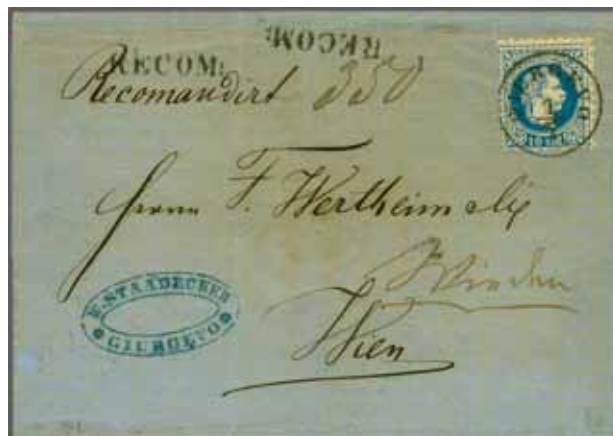 RECOM:
RECOM:
Recomandirt 350
Herrn F. Wertheim & Co
Wieden
Wien
E. STAADECKER
GIURGEVO